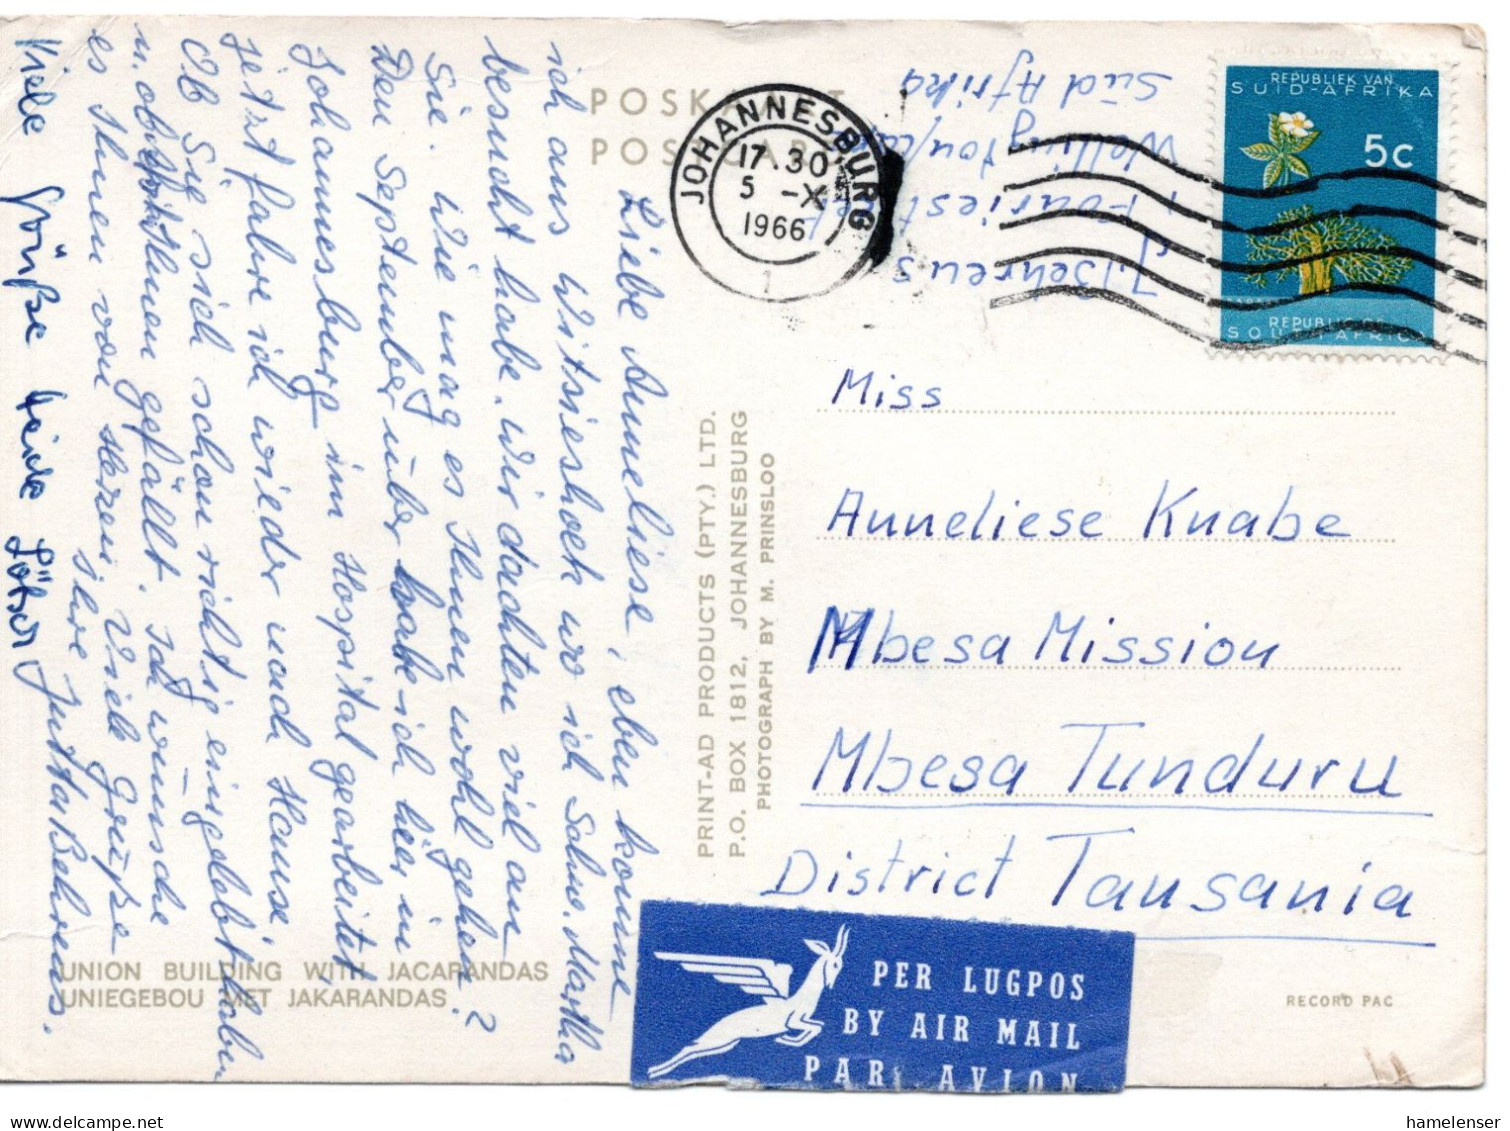 POSKAART
POSTCARD
JOHANNESBURG
17.30
5 -X
1966
1
REPUBLIEK VAN
SUID-AFRIKA
5c
REPUBLIC OF
SOUTH AFRICA
J. Behrens
Fouriest
Wellington/
Süd Afrika
Liebe Anneliese, eben komme
ich aus Witsieshoek wo ich Schw. Martha
besucht habe. Wir dachten viel an
Sie. Wie mag es Ihnen wohl gehen?
Den September über habe ich hier in
Johannesburg im Hospital gearbeitet
jetzt fahre ich wieder nach Hause.
Ob Sie sich schon richtig eingelebt haben
u. ob es Ihnen gefällt. Ich wünsche
es Ihnen von Herzen. Viele Grüße
Ihre Jutta Behrens.
Viele Grüße
Miss
Anneliese Knabe
Mbesa Mission
Mbesa Tunduru
District Tansania
PRINT-AD PRODUCTS (PTY.) LTD.
P.O. BOX 1812, JOHANNESBURG
PHOTOGRAPH BY M. PRINSLOO
UNION BUILDING WITH JACARANDAS
UNIEGEBOU MET JAKARANDAS
PER LUGPOS
BY AIR MAIL
PAR AVION
RECORD PAC
hamelenser